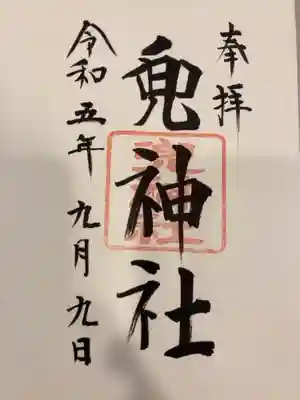 奉拝
兜神社
令和五年 九月九日